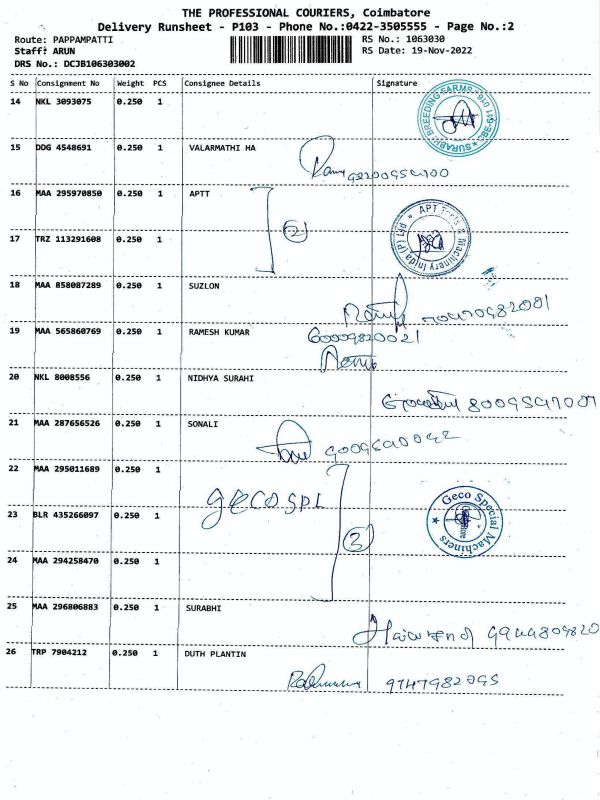 THE PROFESSIONAL COURIERS, Coimbatore
Delivery Runsheet - P103 - Phone No.:0422-3505555 - Page No.:2
Route: PAPPAMPATTI RS No.: 1063030
Staff: ARUN RS Date: 19-Nov-2022
DRS No.: DCJB106303002
S No Consignment No Weight PCS Consignee Details Signature
14 NKL 3093075 0.250 1
SURABHI BREEDING FARMS
15 DDG 4548691 0.250 1 VALARMATHI HA
16 MAA 295970850 0.250 1 APTT
2
17 TRZ 113291608 0.250 1
APT Tools & Machinery Inida (P) Ltd
18 MAA 858087289 0.250 1 SUZLON
19 MAA 565860769 0.250 1 RAMESH KUMAR
20 NKL 8008556 0.250 1 NIDHYA SURAHI
21 MAA 287656526 0.250 1 SONALI
22 MAA 295011689 0.250 1
geco SPL
23 BLR 435266097 0.250 1
Geco Special Machiners
24 MAA 294258470 0.250 1
25 MAA 296806883 0.250 1 SURABHI
26 TRP 7904212 0.250 1 DUTH PLANTIN